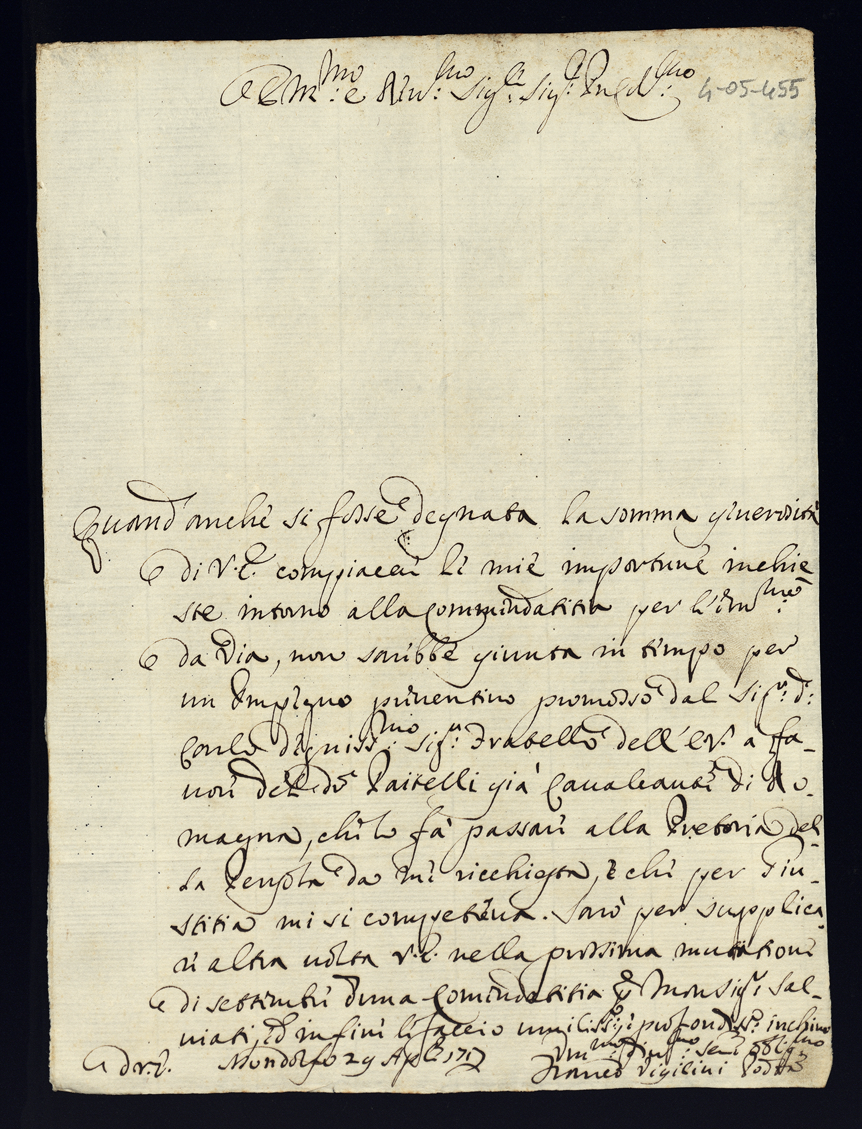 Ecc.mo e Rev.mo Sig.r Sig.r Pne Col.mo 4-05-455
Quand'anche si fosse degnata la somma generosità
di V.E. compiacere le mie importune inchie
ste intorno alla Commendatitia per l'Em.mo
da Via, non sarebbe giunta in tempo per
un Impegno preventivo promosso dal Sig.r D.
Carlo digniss.mo Sig.r Fratello dell'E.V. a fa-
vore del do Paitelli già Cavalcante di Ro-
magna, che lo fà passare alla Pretoria del-
la Pergola da me ricchiesta, e che per Giu-
stitia mi si competeva. Sarò per supplica-
re altra volta V.E. nella prossima mutatione
di settembre d'una Comendatitia p Monsig.r Sal-
viati, ed in fine le faccio umiliss.o, e profondiss.o inchino
Di V.E. Mondolfo 29 Aple 1717
Um.mo Dev.mo Ser.e Obblig.mo
Franco Vigilini Podtà